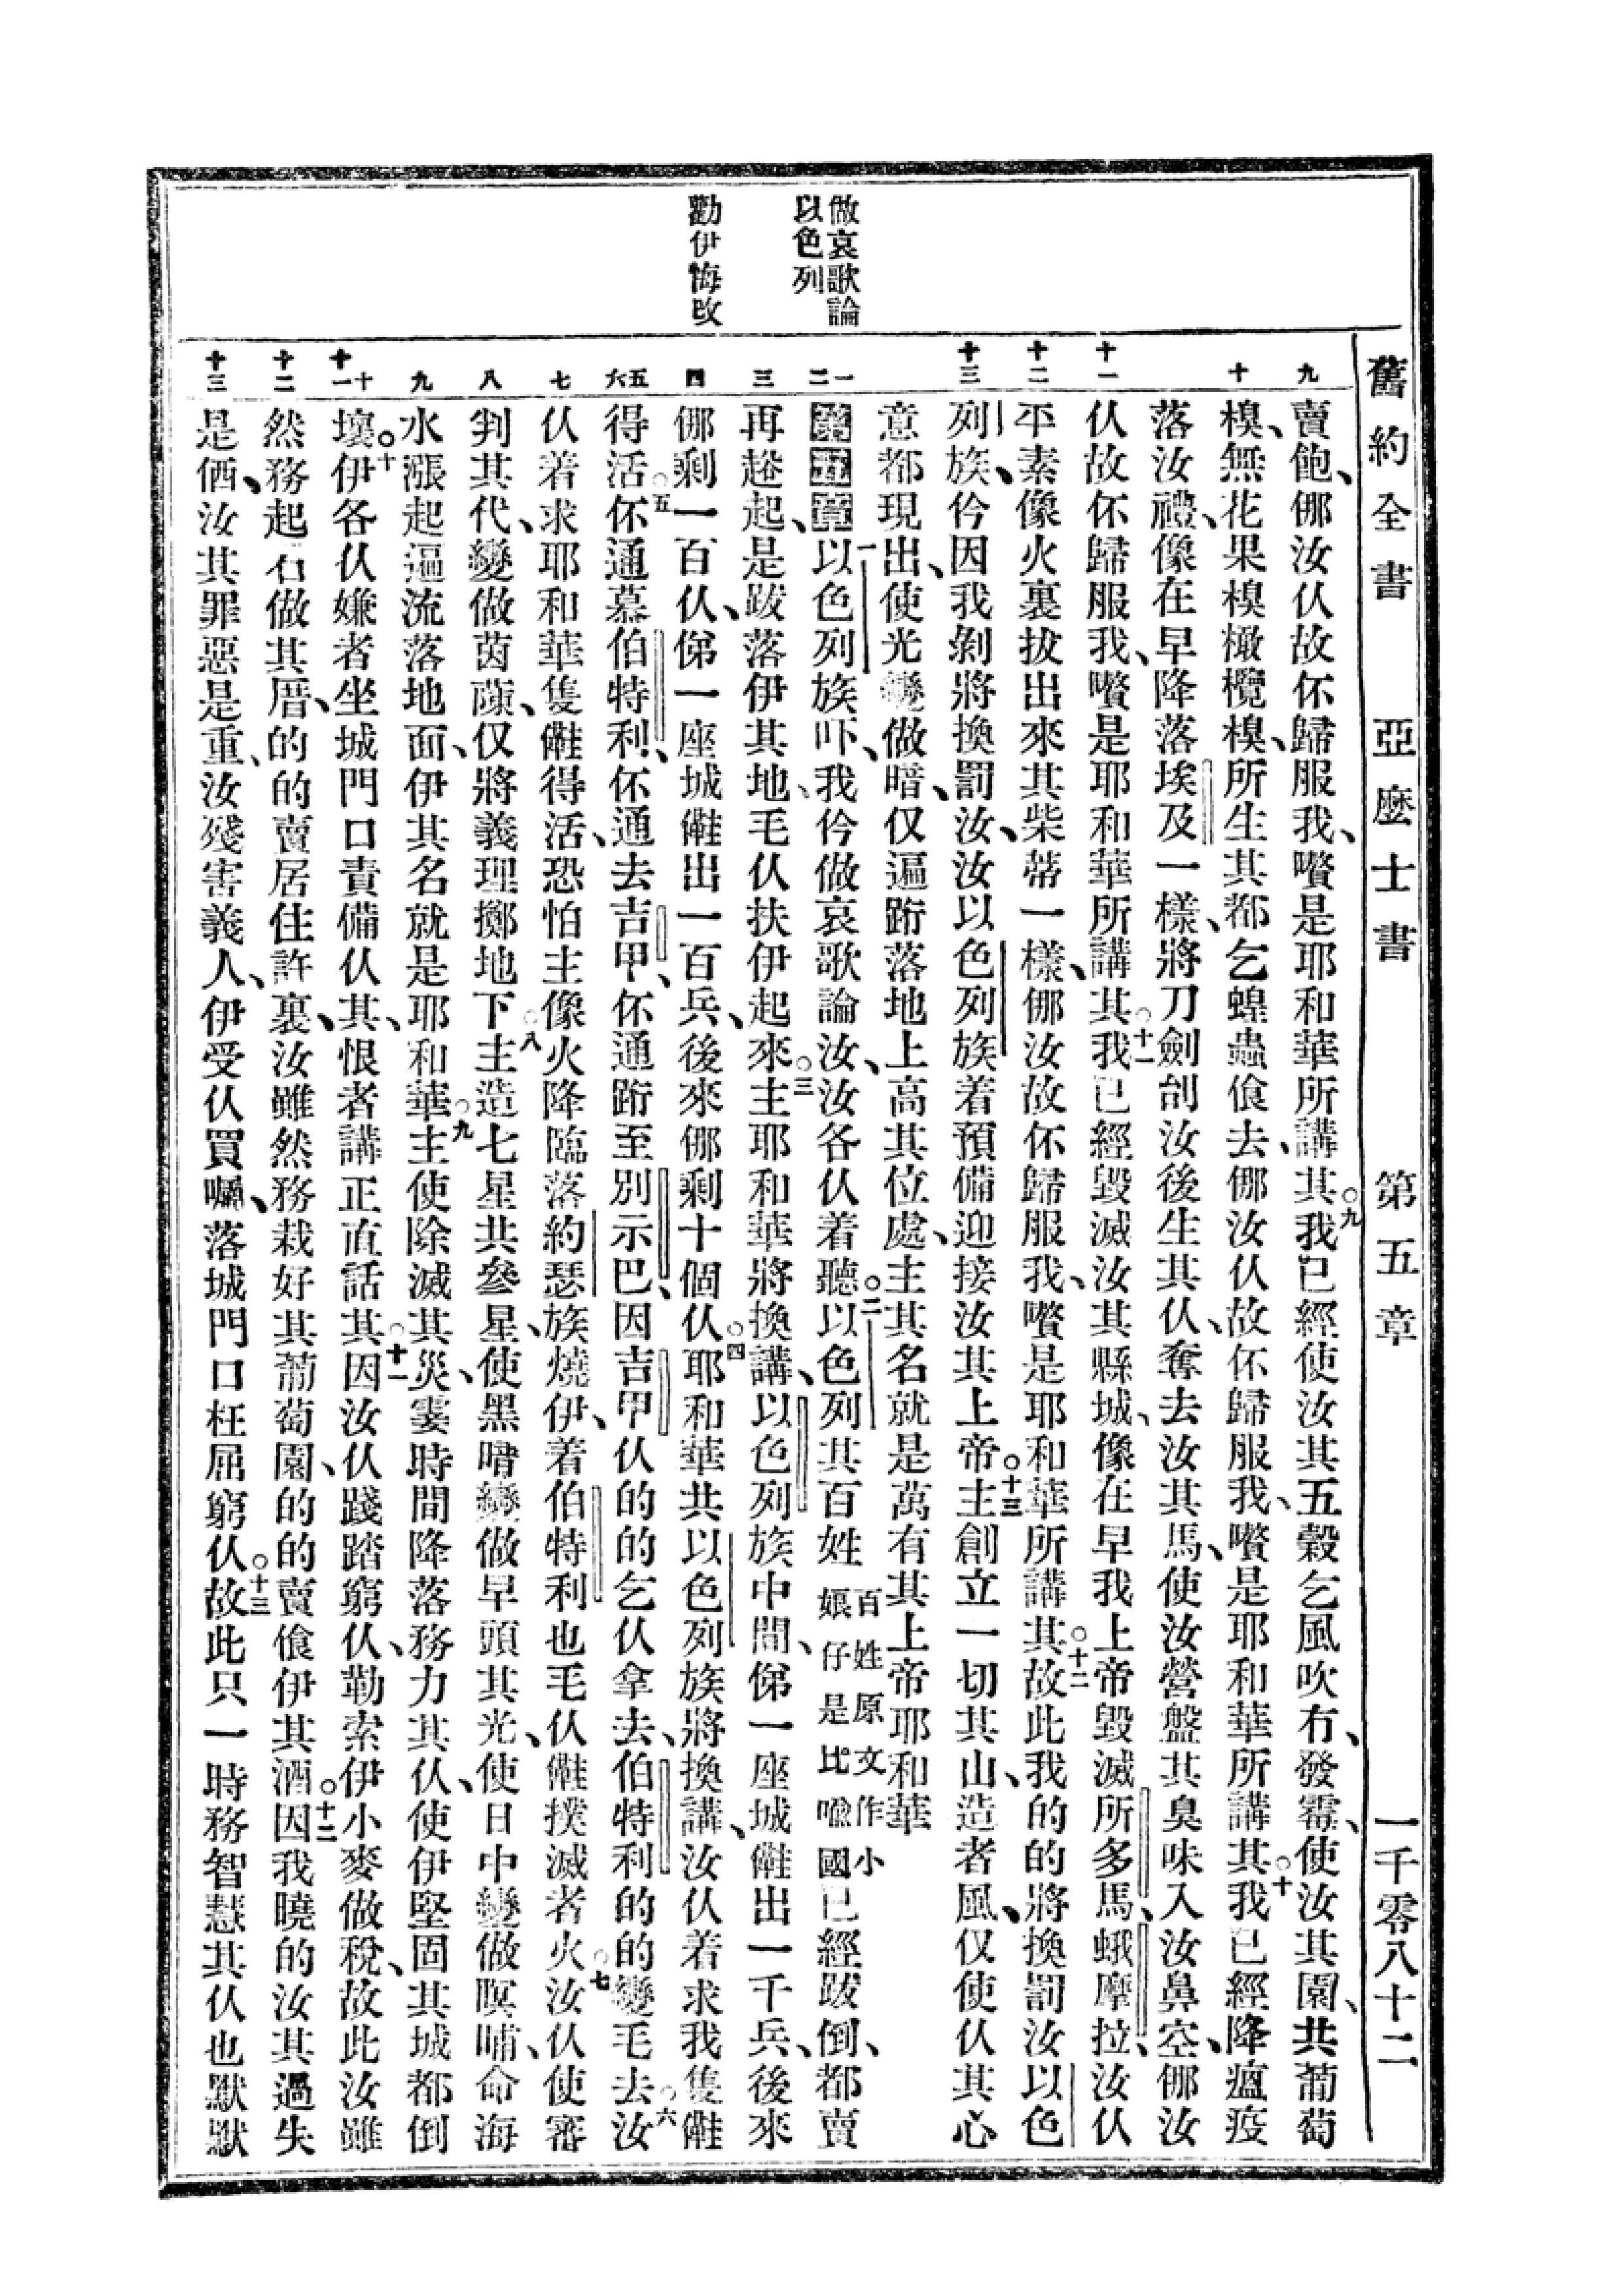 舊約全書 亞麼士書 第五章 一千零八十二
做哀歌論
以色列
勸伊悔改
九
賣飽、㑚汝仈故伓歸服我、嚽是耶和華所講、其○九我已經使汝其五穀乞風吹冇、發霉、使汝其園、共葡萄
十
槼、無花果槼橄欖槼、所生其都乞蝗蟲飡去、㑚汝仈故伓歸服我、嚽是耶和華所講其○十我已經降瘟疫
落汝禮、像在早降落埃及一樣、將刀劍刣汝後生其仈、奪去汝其馬、使汝營盤其臭味入汝鼻空、㑚汝
十一
仈故伓歸服我、嚽是耶和華所講其○十一我已經毀滅汝其縣城、像在早我上帝毀滅所多馬、蛾摩拉、汝仈
十二
平素像火裏拔出來其柴蔕一樣、㑚汝故伓歸服我、嚽是耶和華所講其○十二故此我的的將換罰汝以色
十三
列族、伶因我剝將換罰汝、汝以色列族着預備迎接汝其上帝○十三主創立一切其山、造者風、仅使仈其心
意都現出、使光變做暗、仅遍跲落地上高其位處、主其名就是萬有其上帝耶和華
一二
第五章一以色列族吓、我伶做哀歌論汝、汝各仈着聽○二以色列其百姓百姓原文作小娘仔是比喩國已經跋倒、都賣
三
再趂起、是跋落伊其地、毛仈扶伊起來○三主耶和華將換講、以色列族中間、俤一座城𠆧出一千兵、後來
四
㑚剩一百仈、俤一座城𠆧出一百兵、後來㑚剩十個仈○四耶和華共以色列族將換講、汝仈着求我隻𠆧
五六
得活○五伓通慕伯特利、伓通去吉甲、伓通跲至別示巴、因吉甲仈的的乞仈拿去、伯特利的的變毛去○六汝
七
仈着求耶和華隻𠆧得活、恐怕主像火降臨落約瑟族、燒伊、着伯特利也毛仈𠆧撲滅者火○七汝仈使審
八
判其代、變做茵蔯、仅將義理擲地下○八主造七星共參星、使黑暗變做早頭其光、使日中變做暝晡、命海
九
水漲起逼流落地面、伊其名就是耶和華○九主使除滅其災、霎時間降落務力其仈、使伊堅固其城都倒
十十一
壞○十伊各仈嫌者坐城門口責備仈其、恨者講正直話其○十一因汝仈踐踏窮仈、勒索伊小麥做稅、故此汝雖
十二
然務起石做其厝、的的賣居住許裏、汝雖然務栽好其葡萄園、的的賣飡伊其酒○十二因我曉的汝其過失
十三
是価、汝其罪惡是重、汝殘害義人、伊受仈買囑、落城門口枉屈窮仈○十三故此只一時務智慧其仈也默默